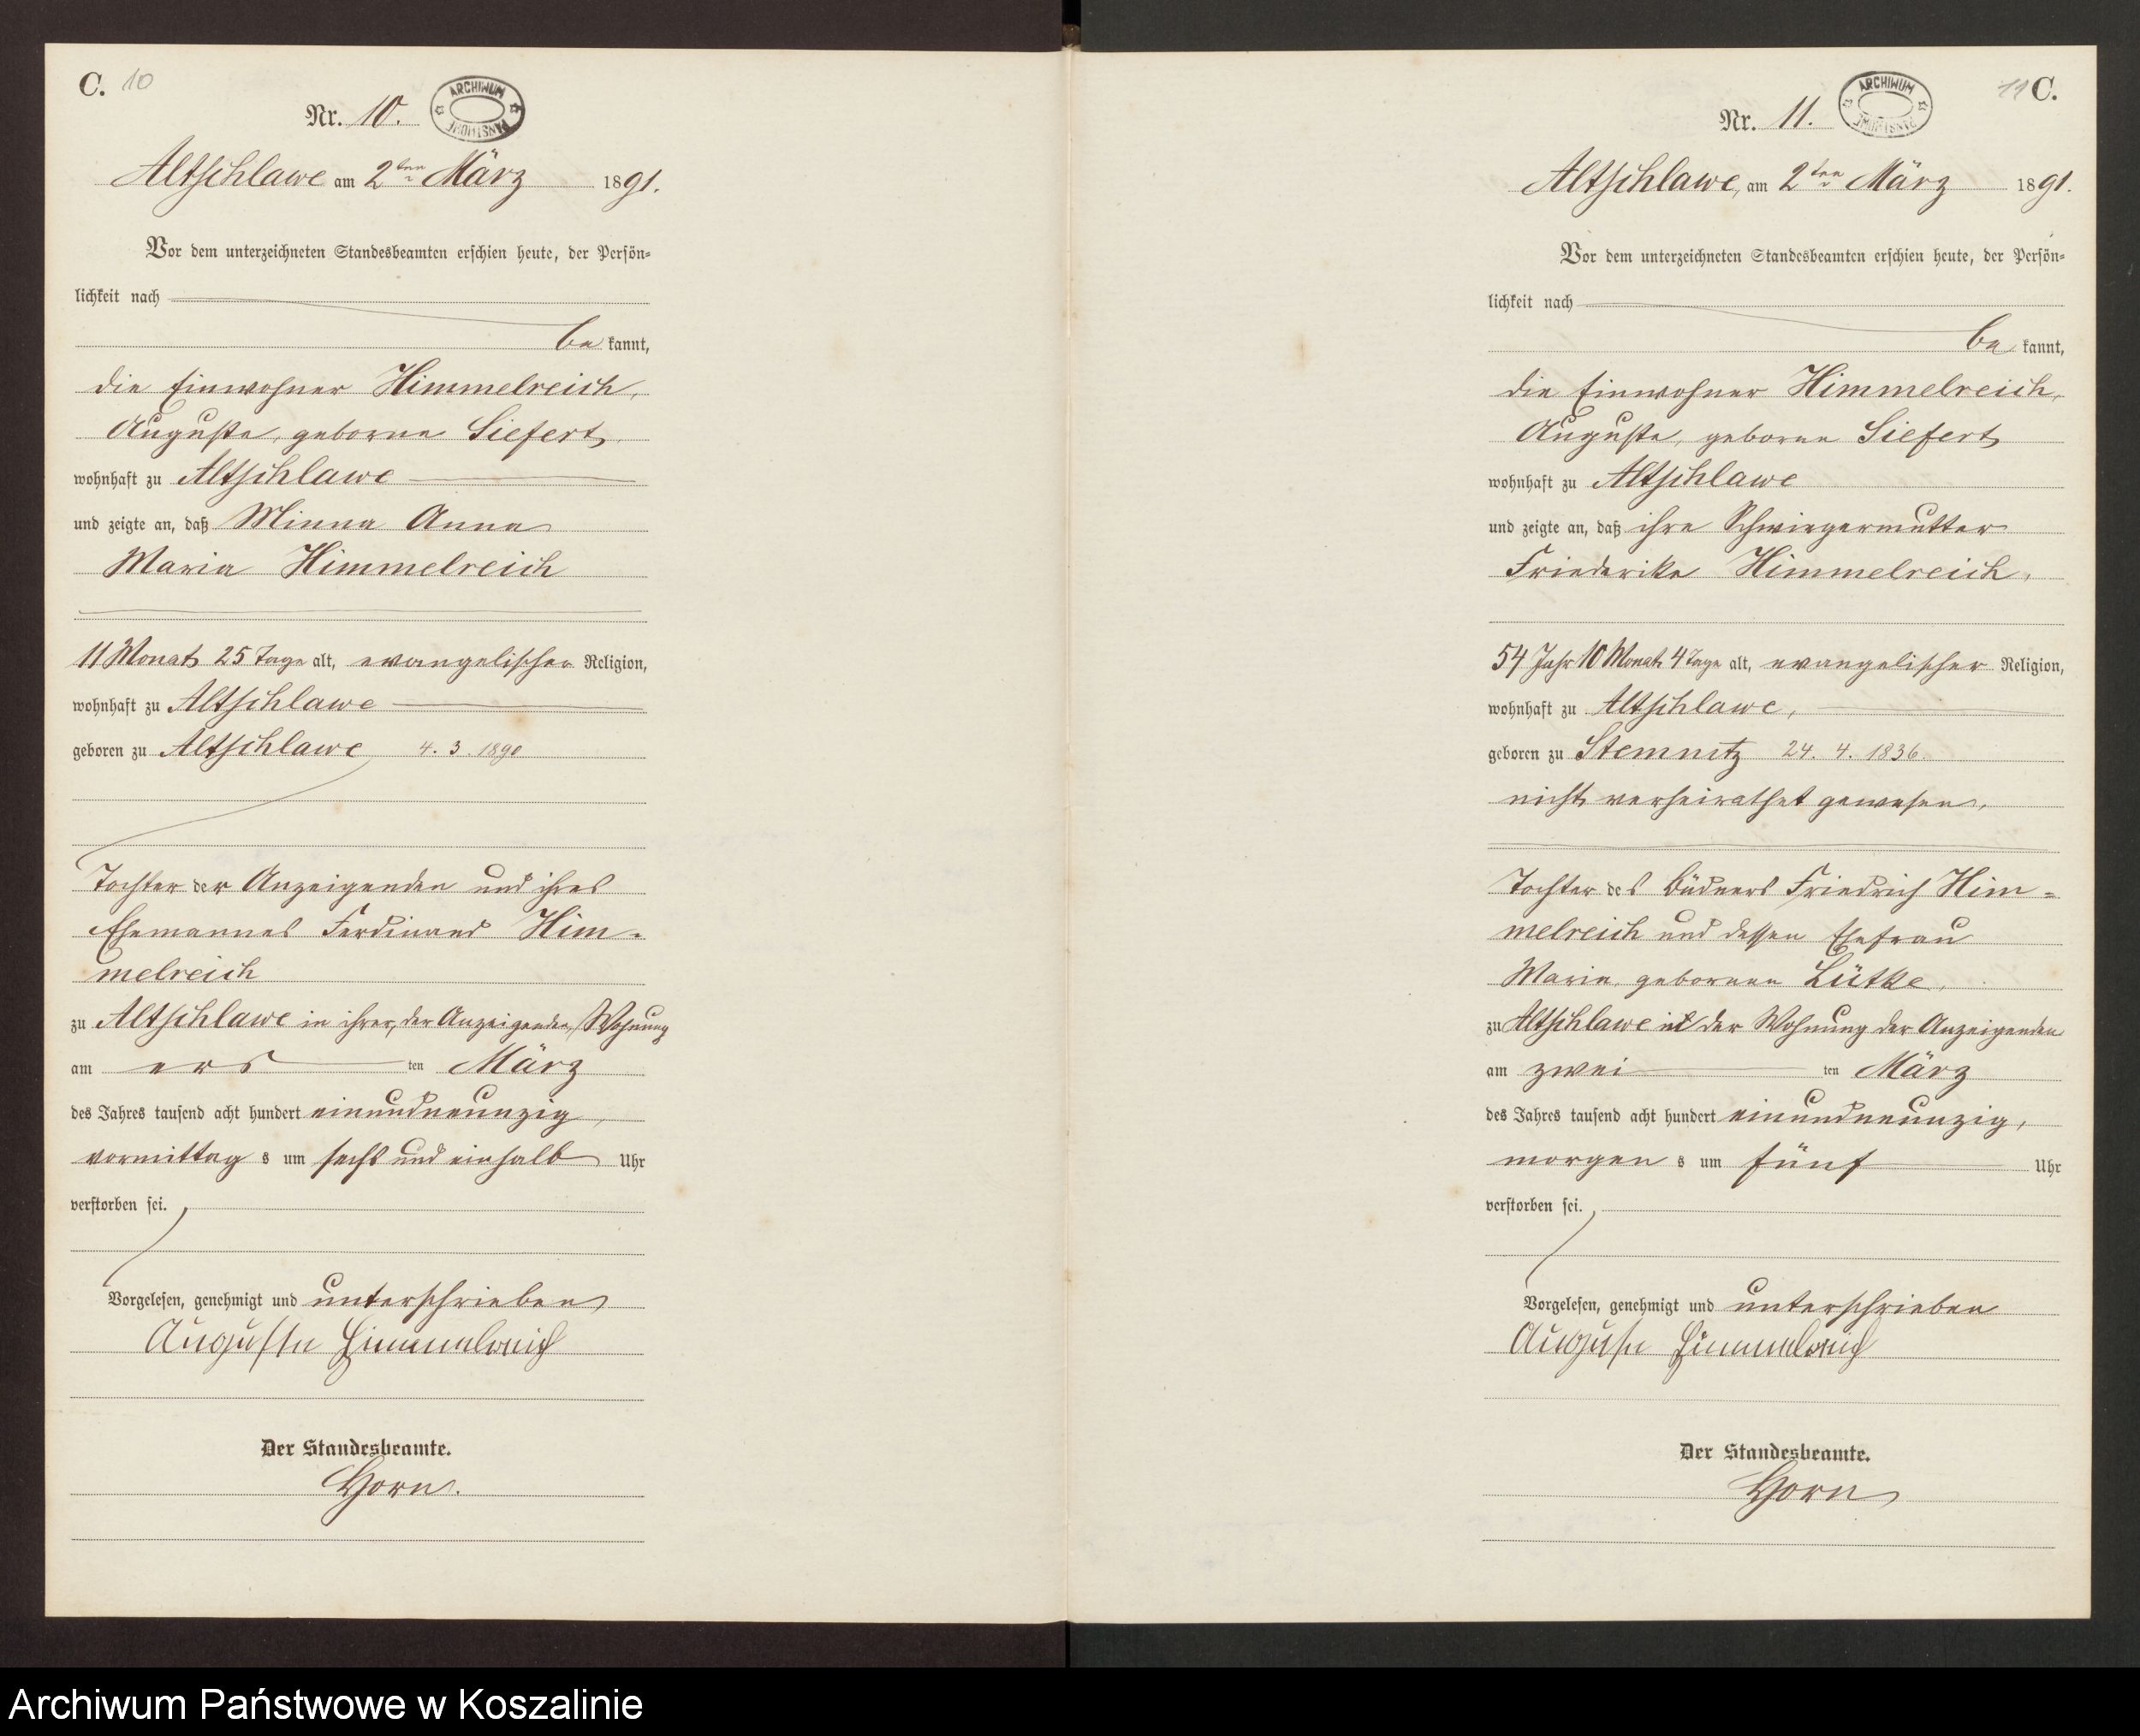 C. 10
Nr. 10.
ARCHIWUM PAŃSTWOWE
Altschlawe am 2ten März 1891.
Vor dem unterzeichneten Standesbeamten erschien heute, der Persön-
lichkeit nach
be kannt,
die Einwohner Himmelreich,
Auguste, geborne Siefert
wohnhaft zu Altschlawe
und zeigte an, daß Minna Anna
Maria Himmelreich
11 Monat 25 Tage alt, evangelischer Religion,
wohnhaft zu Altschlawe
geboren zu Altschlawe 4. 3. 1890
Tochter der Anzeigenden und ihres
Ehemannes Ferdinand Him-
melreich
zu Altschlawe in ihrer, der Anzeigenden, Wohnung
am ers ten März
des Jahres tausend acht hundert einundneunzig,
vormittag s um sechs und einhalb Uhr
verstorben sei.
Vorgelesen, genehmigt und unterschrieben
Auguste Himmelreich
Der Standesbeamte.
Horn.
11 C.
Nr. 11.
ARCHIWUM PAŃSTWOWE
Altschlawe, am 2ten März 1891.
Vor dem unterzeichneten Standesbeamten erschien heute, der Persön-
lichkeit nach
be kannt,
die Einwohner Himmelreich,
Auguste, geborne Siefert
wohnhaft zu Altschlawe
und zeigte an, daß ihre Schwiegermutter
Friederike Himmelreich,
54 Jahr 10 Monat 4 Tage alt, evangelischer Religion,
wohnhaft zu Altschlawe,
geboren zu Stemnitz 24. 4. 1836
nicht verheirathet gewesen,
Tochter des Büdners Friedrich Him-
melreich und dessen Ehefrau
Maria, gebornen Lütke,
zu Altschlawe in der Wohnung der Anzeigenden
am zwei ten März
des Jahres tausend acht hundert einundneunzig,
morgen s um fünf Uhr
verstorben sei.
Vorgelesen, genehmigt und unterschrieben
Auguste Himmelreich
Der Standesbeamte.
Horn
Archiwum Państwowe w Koszalinie